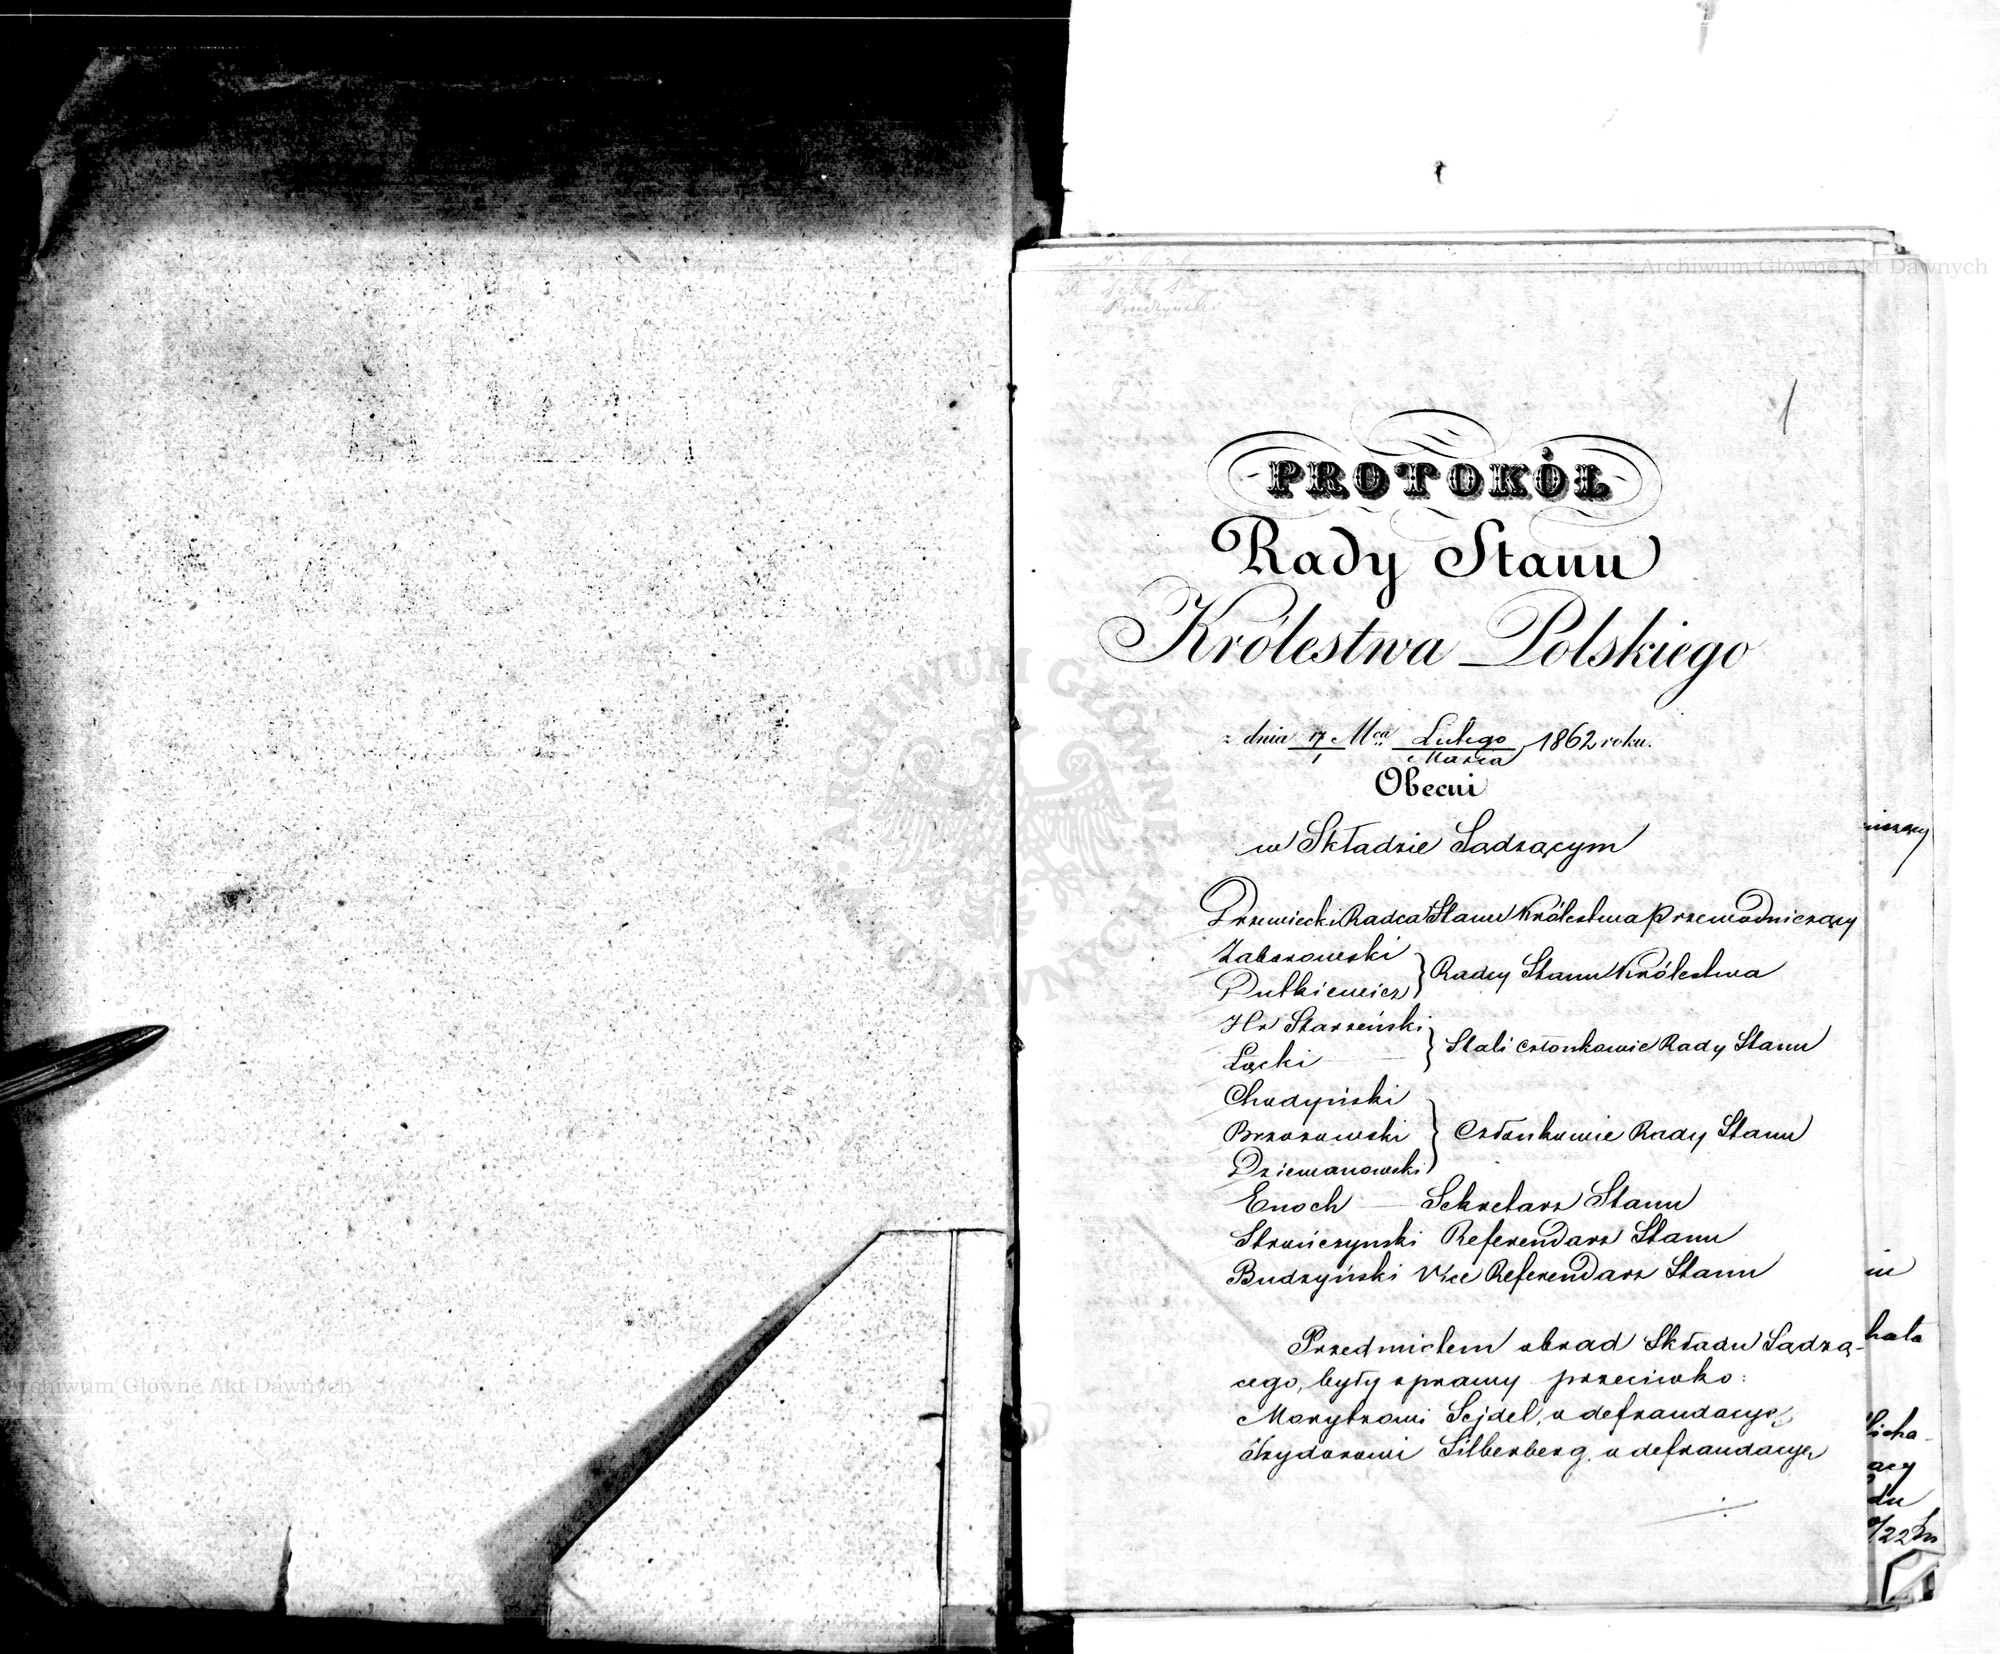 Archiwum Główne Akt Dawnych
Budzyński
1
PROTOKÓŁ
Rady Stanu
Królestwa Polskiego
z dnia 17/1 Mca Lutego/Marca 1862 roku.
Obecni
w Składzie Sądzącym
Drzewiecki Radca Stanu Królestwa Przewodniczący
Zaborowski
Dutkiewicz } Radcy Stanu Królestwa
Hr Starzeński
Łącki } Stali członkowie Rady Stanu
Chudyński
Brzozowski } Członkowie Rady Stanu
Dziewanowski
Enoch — Sekretarz Stanu
Strończynski Referendarz Stanu
Budzyński Vice Referendarz Stanu
Przedmiotem obrad Składu Sądzą-
cego, były sprawy przeciwko:
Morytzowi Sejdel, o defraudacyę,
Izydorowi Silberberg, o defraudacyę
Archiwum Główne Akt Dawnych
ARCHIWUM GŁÓWNE AKT DAWNYCH